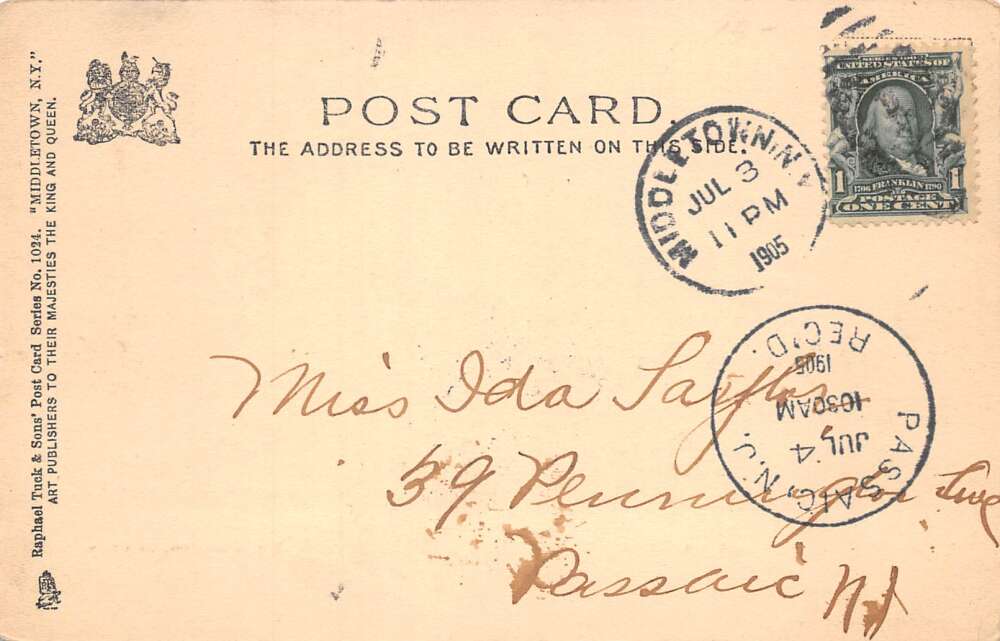 Raphael Tuck & Sons' Post Card Series No. 1024. "MIDDLETOWN, N.Y."
ART PUBLISHERS TO THEIR MAJESTIES THE KING AND QUEEN.
POST CARD.
THE ADDRESS TO BE WRITTEN ON THIS SIDE.
MIDDLETOWN, N.Y.
JUL 3
11 PM
1905
UNITED STATES OF
AMERICA
1 1706 FRANKLIN 1790 1
POSTAGE
ONE CENT
PASSAIC, N.J.
JUL 4
1030AM
1905
REC'D.
Miss Ida
59 Pennington Ave
Passaic NJ